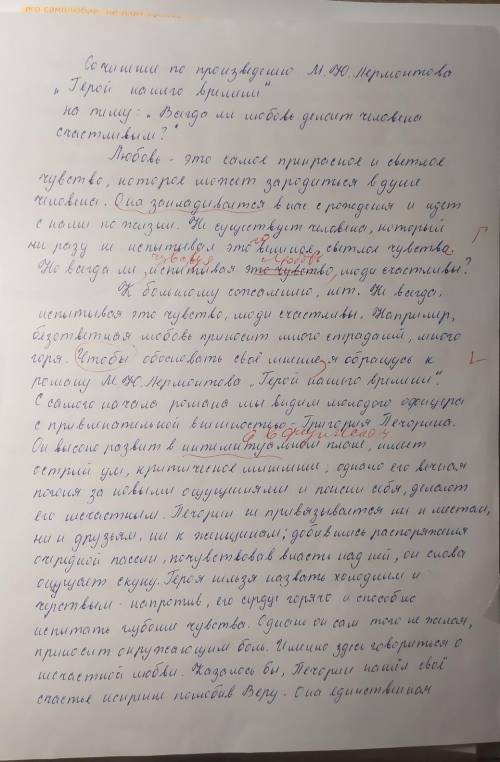 его самолюбие, не дают
Сочинение по произведению М.Ю.Лермонтова
„Герой нашего времени"
на тему: „Всегда ли любовь делает человека
счастливым?"
Любовь - это самое прикрасное и светлое
чувство, которое может зародиться в душе
человека. Она закладывается в нас с рождения и идет
с нами по жизни. Не существует человека, который
ни разу не испытывал это великое, светлое чувства.
чувствуя любовь
Но всегда ли, испытывая это чувство, люди счастливы?
К большому сожалению, нет. Не всегда,
испытывая это чувство, люди счастливы. Например,
безответная любовь приносит много страданий, много
горя. Чтобы обосновать своё мнение я обращусь к
роману М.Ю.Лермонтова „Герой нашего времени".
С самого начала романа мы видим молодого офицера
с привлекательной внешностью - Григория Печорина.
а в физическом
Он высоко развит в интиликтуальном плане, имеет
острый ум, критическое мышление; однако его вечная
погоня за новыми ощущениями и поиски себя, делают
его несчастным. Печорин не привязывается ни к местам,
ни к друзьям, ни к женщинам; добившись распоряжения
очередной пассии, почувствовав власть над ней, он снова
ощущает скуку. Героя нельзя назвать холодным и
черствым - напротив, его сердце горячо и способно
испытать глубокие чувства. Однако он сам того не желая,
приносит окружающим боль. Именно здесь говориться о
несчастной любви. Казалось бы, Печорин нашёл своё
счастье искренне полюбив Веру. Она единственная